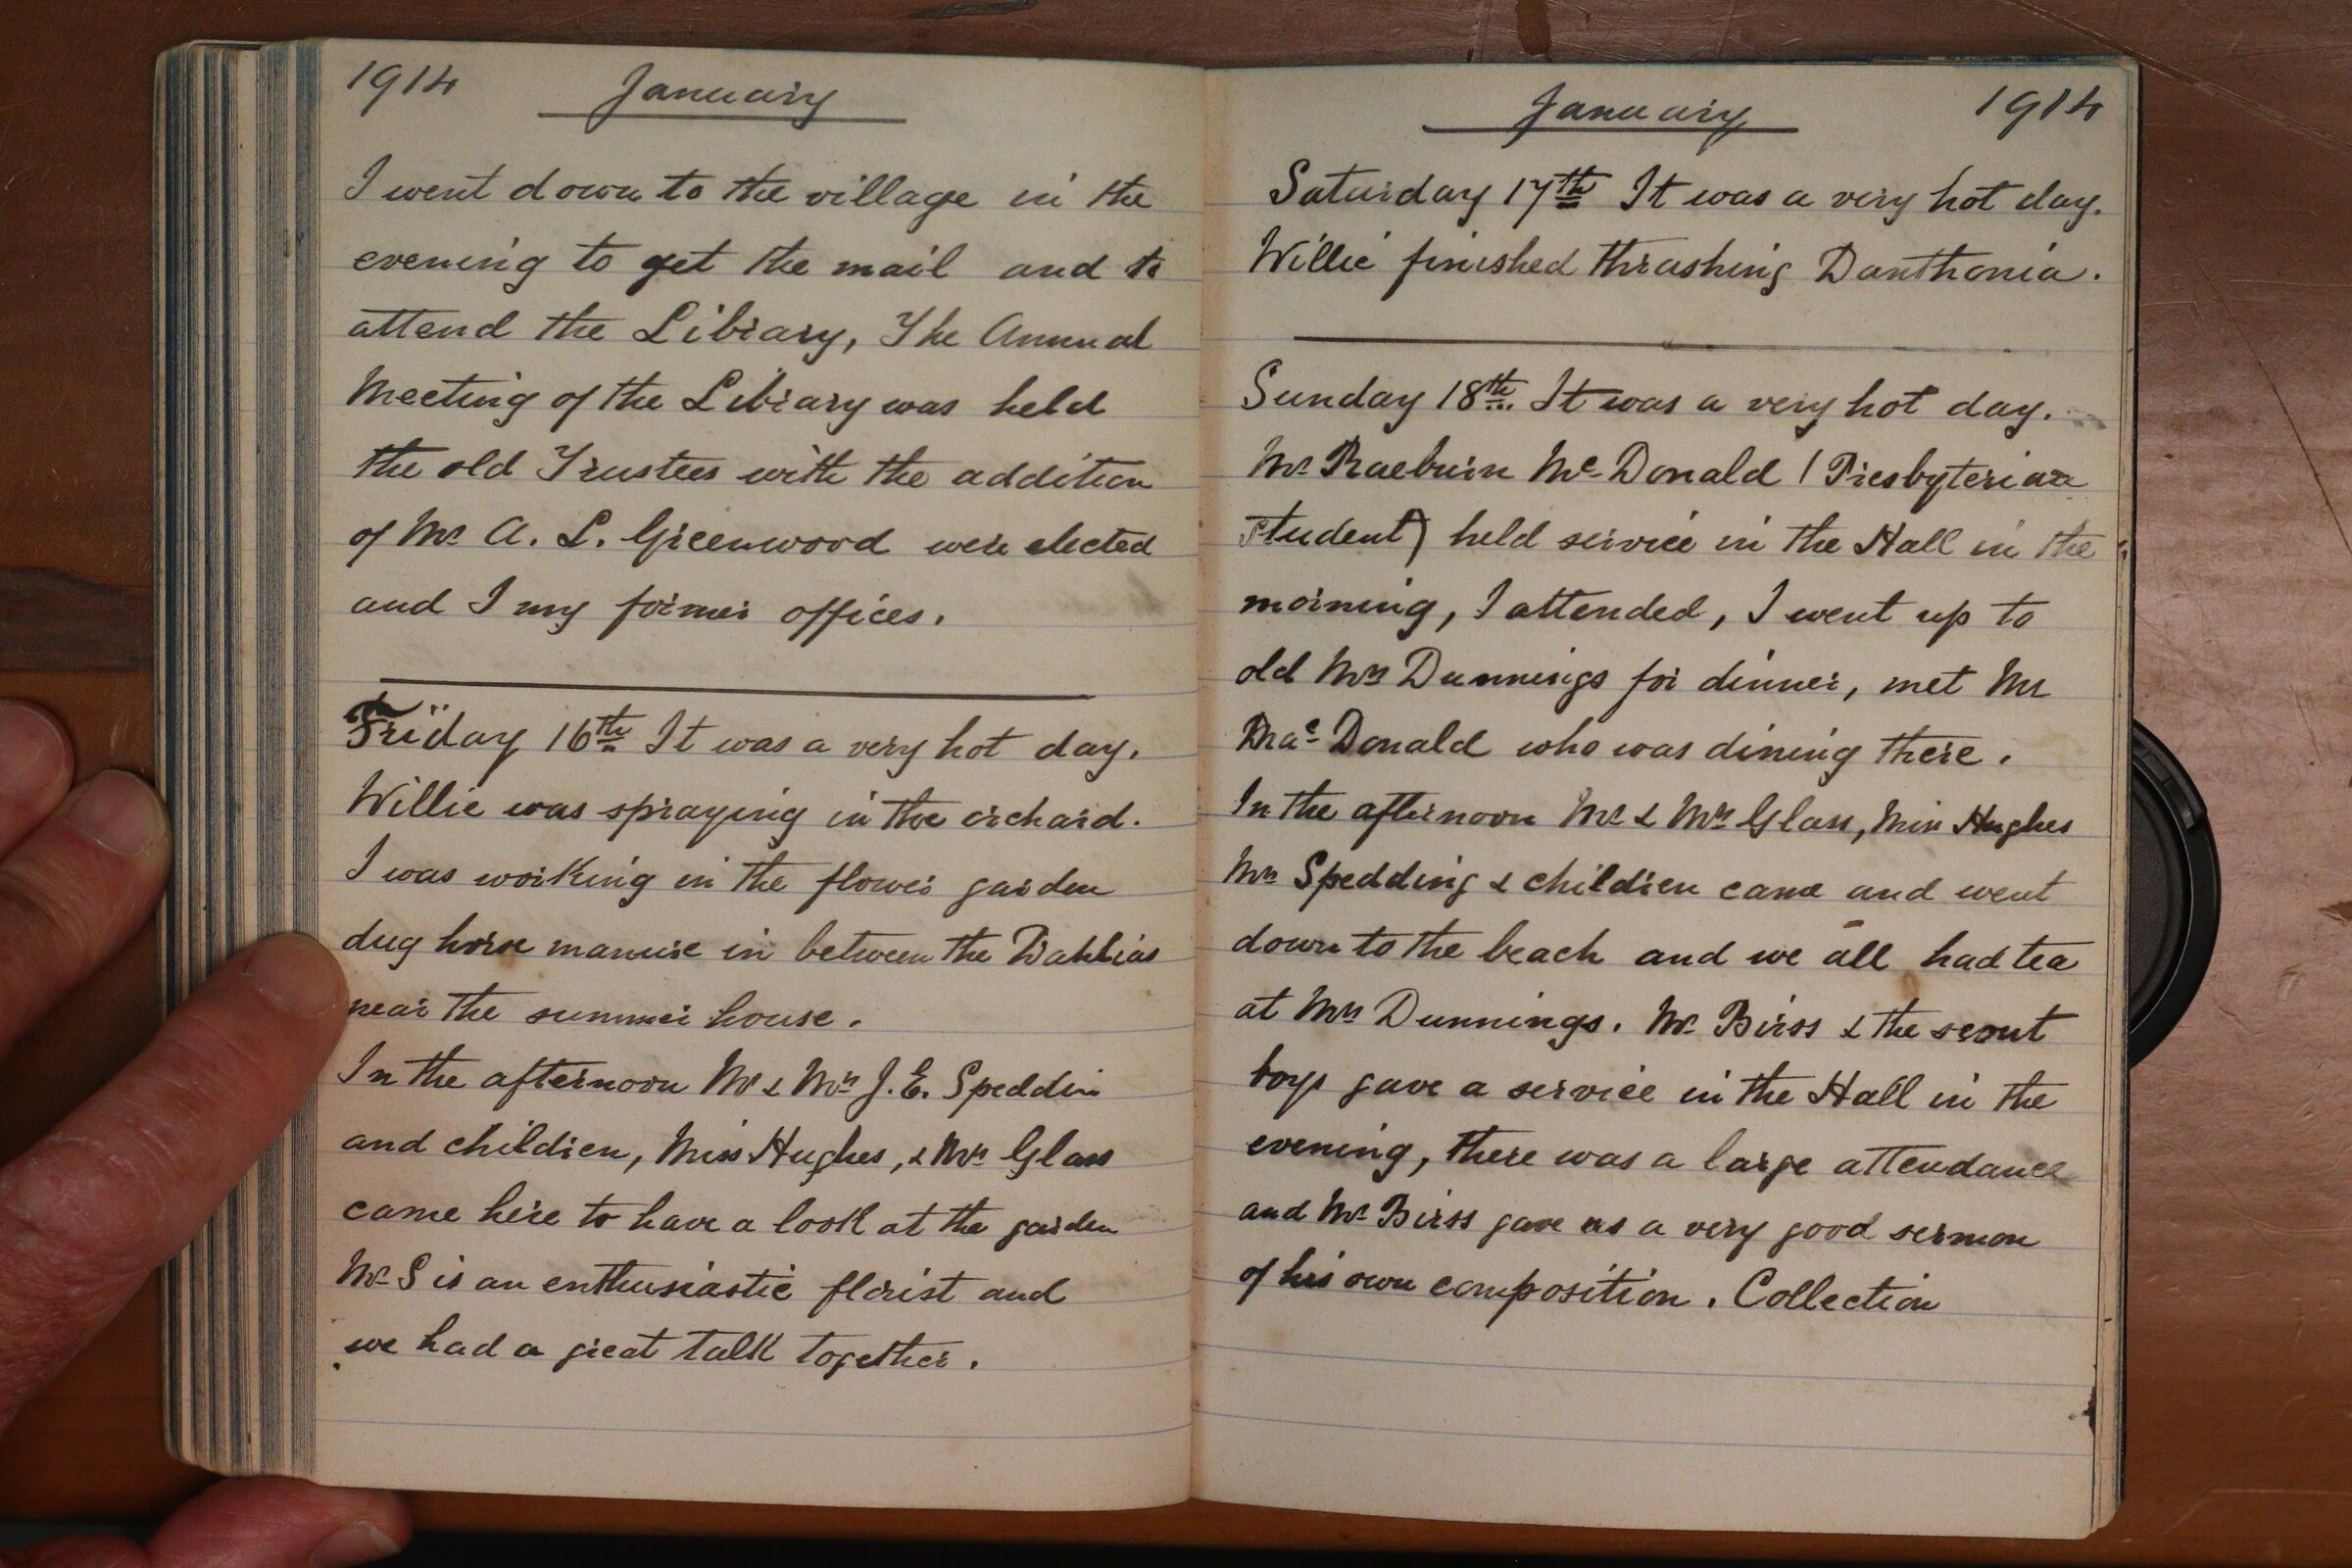 1914 January
I went down to the village in the
evening to get the mail and to
attend the Library, The Annual
Meeting of the Library was held
the old Trustees with the addition
of Mr A. L. Greenwood were elected
and I my former offices.
Friday 16th It was a very hot day.
Willie was spraying in the orchard.
I was working in the flower garden
dug horse manure in between the Dahlias
near the summer house.
In the afternoon Mr & Mrs J. E. Speddin
and children, Miss Hughes, & Mrs Glass
came here to have a look at the garden
Mr S is an enthusiastic florist and
we had a great talk together.
January 1914
Saturday 17th It was a very hot day.
Willie finished thrashing Danthonia.
Sunday 18th. It was a very hot day.
Mr Raeburn Mc Donald (Presbyterian
Student) held service in the Hall in the
morning, I attended, I went up to
old Mrs Dunnings for dinner, met Mr
Mac Donald who was dining there.
In the afternoon Mr & Mrs Glass, Miss Hughes
Mrs Spedding & children came and went
down to the beach and we all had tea
at Mrs Dunnings. Mr Birss & the scout
boys gave a service in the Hall in the
evening, there was a large attendance
and Mr Birss gave us a very good sermon
of his own composition. Collection